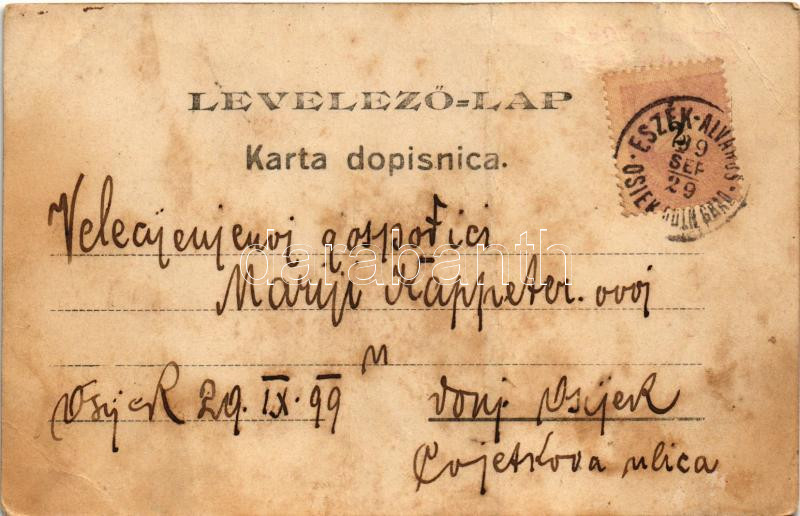 LEVELEZŐ=LAP
Karta dopisnica.
ESZÉK-ALVÁROS
99
SEP
29
OSIEK
Velecijenjenoj gospođici
Mariji Kappeter. ovoj
u
Osijek 29. IX. 99
donj Osijek
Cvjetkova ulica
darabanth